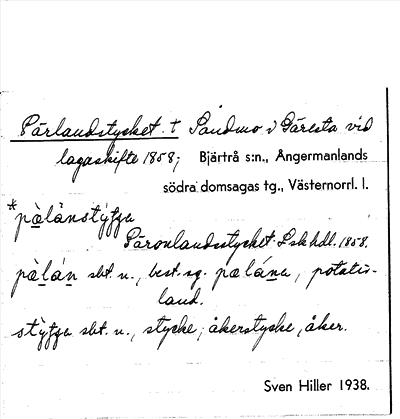 Pärlandstycket. t Sandmo i Gåresta vid
lagaskifte 1858; Bjärtrå s:n., Ångermanlands
södra domsagas tg., Västernorrl. l.
*pälånstýҫҫa
Päronlandsstycket. Lskhdl. 1858.
pälån sbt. n., best. sg. pælána, potatis-
land.
stýҫҫa sbt. n., stycke, åkerstycke, åker.
Sven Hiller 1938.